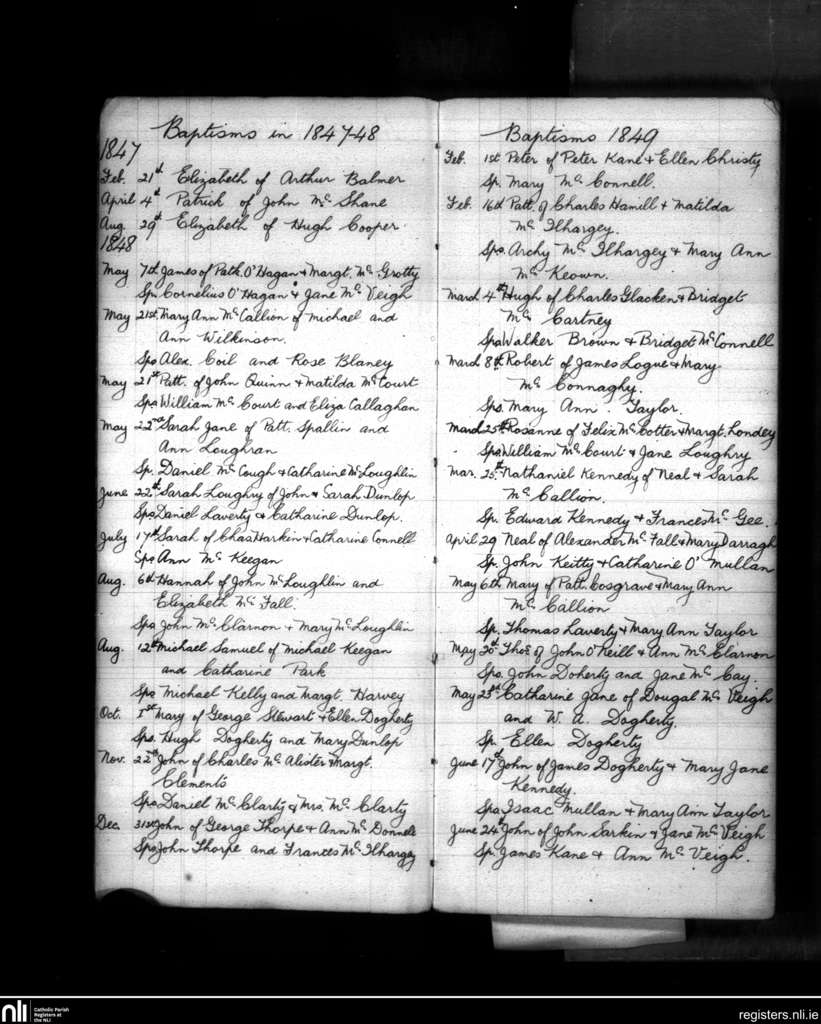 Baptisms in 1847-48
1847
Feb. 21st Elizabeth of Arthur Balmer
April 4th Patrick of John Mc Shane
Aug. 29th Elizabeth of Hugh Cooper
1848
May 7th James of Path. O'Hagan & Margt. Mc Grotty
Sp. Cornelius O'Hagan & Jane Mc Veigh
May 21st Mary Ann Mc Callion of Michael and
Ann Wilkinson.
Sps Alex. Coil and Rose Blaney
May 21st Patt. of John Quinn & Matilda Mc Court
Sps William Mc Court and Eliza Callaghan
May 22nd Sarah Jane of Patt. Spallin and
Ann Loughran
Sp. Daniel Mc Cough & Catharine Mc Loughlin
June 22nd Sarah Loughry of John & Sarah Dunlop
Sps Daniel Laverty & Catharine Dunlop.
July 17th Sarah of Chas Harkin & Catharine Connell
Sps Ann Mc Keegan
Aug. 6th Hannah of John Mc Loughlin and
Elizabeth Mc Fall.
Sps John Mc Clarnon & Mary Mc Loughlin
Aug. 12th Michael Samuel of Michael Keegan
and Catharine Park
Sps Michael Kelly and Margt. Harvey
Oct. 1st Mary of George Stewart & Ellen Dogherty
Sps. Hugh Dogherty and Mary Dunlop
Nov. 22nd John of Charles Mc Alister & Margt.
Clements
Sps Daniel Mc Clarty & Mrs. Mc Clarty
Dec. 31st John of George Thorpe & Ann Mc Donnell
Sps John Thorpe and Frances Mc Ilhargey
Baptisms 1849
Feb. 1st Peter of Peter Kane & Ellen Christy
Sp. Mary Mc Connell.
Feb. 16th Patt. of Charles Hamill & Matilda
Mc Ilhargey.
Sps. Archy Mc Ilhargey & Mary Ann
Mc Keown.
March 4th Hugh of Charles Glacken & Bridget
Mc Cartney
Sps Walker Brown & Bridget Mc Connell
March 8th Robert of James Logue & Mary
Mc Connaghy.
Sps. Mary Ann. Taylor.
March 25th Rosanne of Felix Mc Cotter & Margt. Londey
Sps William Mc Court & Jane Loughry
Mar. 25th Nathaniel Kennedy of Neal & Sarah
Mc Callion.
Sp. Edward Kennedy & Frances Mc Gee.
April 29 Neal of Alexander Mc Fall & Mary Darragh
Sp. John Keitty & Catharine O' Mullan
May 6th Mary of Patt. Cosgrave & Mary Ann
Mc Callion
Sp. Thomas Laverty & Mary Ann Taylor
May 20th Thos of John O'Neill & Ann Mc Clarnon
Sps. John Doherty and Jane Mc Cay.
May 23rd Catharine Jane of Dougal Mc Veigh
and W. A. Dogherty.
Sp. Ellen Dogherty
June 17th John of James Dogherty & Mary Jane
Kennedy.
Sps Isaac Mullan & Mary Ann Taylor
June 24th John of John Larkin & Jane Mc Veigh
Sp. James Kane & Ann Mc Veigh.
nli Catholic Parish
Registers at
the NLI
registers.nli.ie